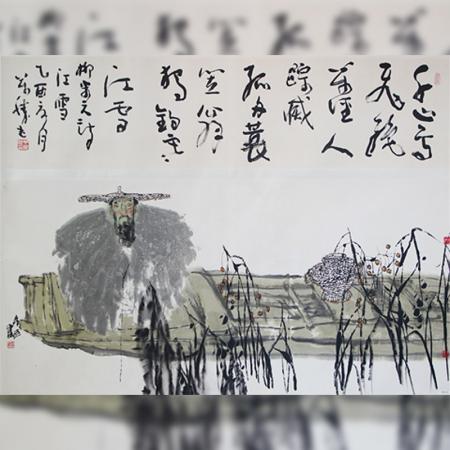 千山鸟
飞絕
萬径人
踪滅
孤舟蓑
笠翁
獨釣寒
江雪
柳宗元诗
江雪
乙酉夏月